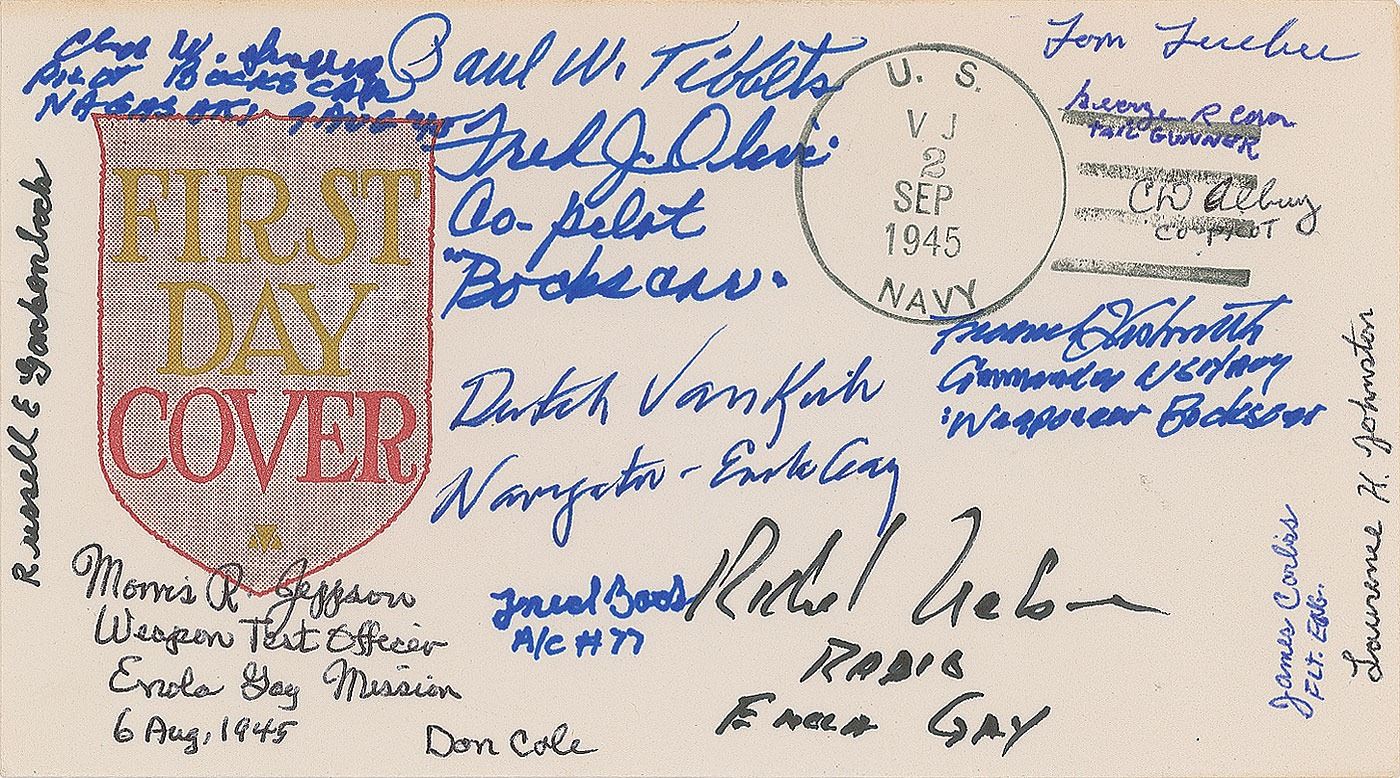 Chas W. Sweeney
PILOT BOCKS CAR
NAGASAKI 9 AUG 45
Paul W. Tibbets
Fred J. Olivi
Co-pilot
"Bockscar"
U. S.
VJ
2
SEP
1945
NAVY
George R Caron
TAIL GUNNER
CD Albury
CO-PILOT
FIRST
DAY
COVER
Russell E Gackenbach
Dutch Van Kirk
Navigator - Enola Gay
Commander US Navy
Weaponeer Bockscar
Lawrence H. Johnston
James Corliss
FLT. ENG.
Morris R. Jeppson
Weapon Test Officer
Enola Gay Mission
6 Aug, 1945
A/C #77
Richard Nelson
RADIO
ENOLA GAY
Don Cole